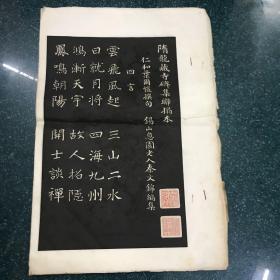 隋龍藏寺碑集聯搨本
仁和葉爾愷撰句　錫山息園老人秦文錦編集
四言
雲飛風起　三山二水
日就月將　四海九州
鴻漸天宇　故人招隱
鳳鳴朝陽　開士談禪